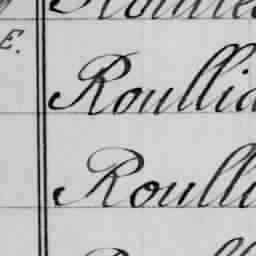 E.
Roullid
Roulli